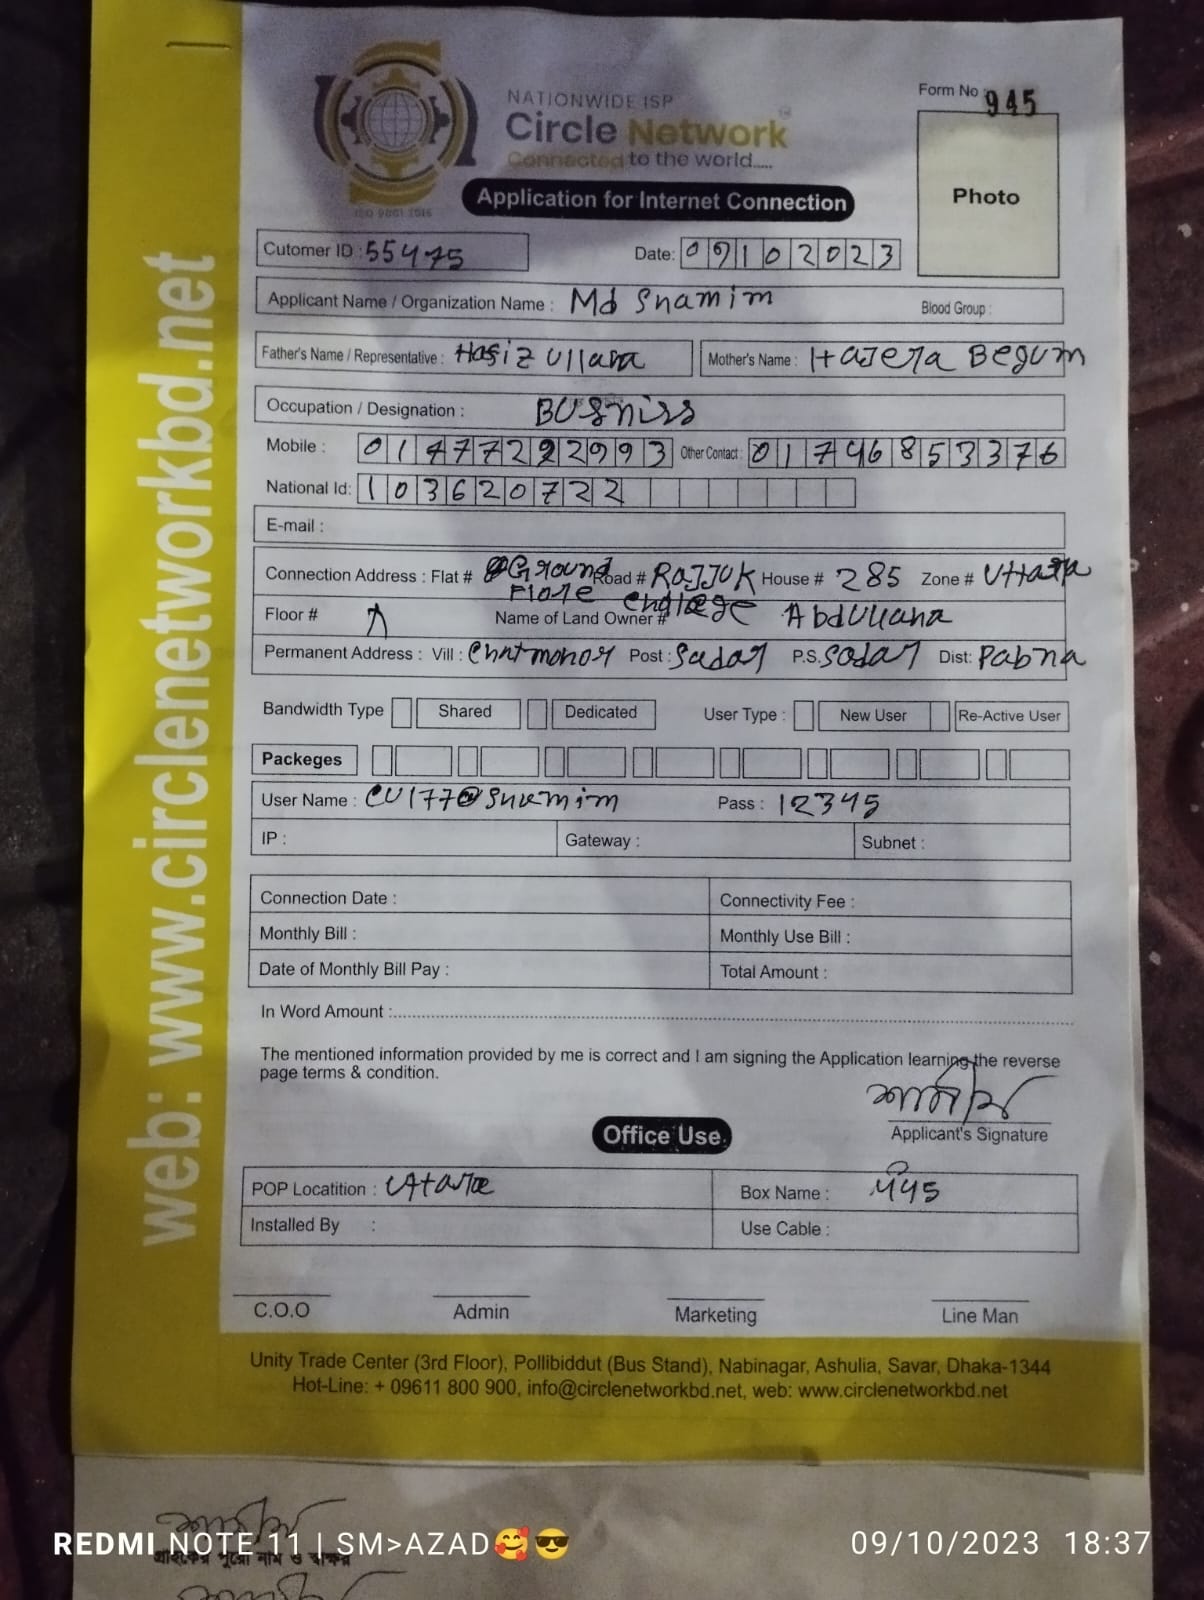 NATIONWIDE ISP
Circle Network
Connected to the world.....
ISO 9001 2015
Form No : 945
Photo
Application for Internet Connection
Cutomer ID : 55475
Date: 09102023
Applicant Name / Organization Name : Md Shamim
Blood Group :
Father's Name / Representative : Hafiz Ullaha
Mother's Name : Hajera Begum
Occupation / Designation : BUSniss
Mobile : 01477292993 Other Contact : 01746853376
National Id: 1036207222
E-mail :
Connection Address : Flat # Ground Flore Road # RAJJUK House # 285 Zone # Uttara
Floor # Name of Land Owner # Abdullaha
Permanent Address : Vill : Chatmohor Post : Sadar P.S. Sadar Dist: Pabna
Bandwidth Type Shared Dedicated User Type : New User Re-Active User
Packeges
User Name : CU177@Shamim Pass : 12345
IP : Gateway : Subnet :
Connection Date : Connectivity Fee :
Monthly Bill : Monthly Use Bill :
Date of Monthly Bill Pay : Total Amount :
In Word Amount :
The mentioned information provided by me is correct and I am signing the Application learning the reverse
page terms & condition.
শামীম
Applicant's Signature
Office Use
POP Locatition : Uttara Box Name :
Installed By : Use Cable :
C.O.O Admin Marketing Line Man
Unity Trade Center (3rd Floor), Pollibiddut (Bus Stand), Nabinagar, Ashulia, Savar, Dhaka-1344
Hot-Line: + 09611 800 900, info@circlenetworkbd.net, web: www.circlenetworkbd.net
web: www.circlenetworkbd.net
শামীম
গ্রাহকের পুরো নাম ও স্বাক্ষর
REDMI NOTE 11 | SM>AZAD🥰😎
09/10/2023 18:37